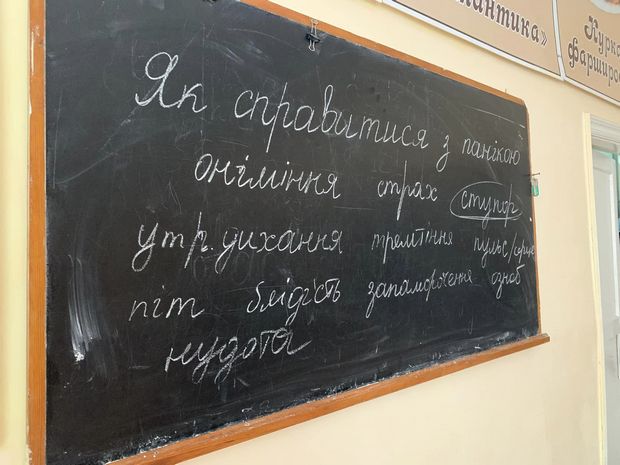 антика»
Курка
фарширо
Як справитися з панікою
оніміння страх ступор
утр. дихання тремтіння пульс/серце
піт блідість запаморочення озноб
нудота